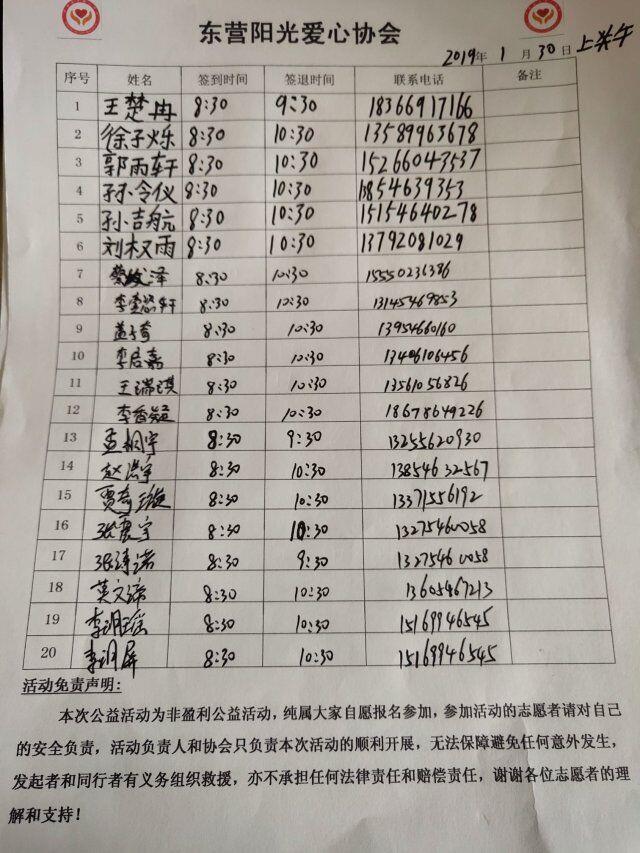 东营阳光爱心协会
2019年 1 月 30 日 上午
序号 姓名 签到时间 签退时间 联系电话 备注
1 王楚冉 8:30 9:30 18366917166
2 徐子烁 8:30 10:30 13589963678
3 郭雨轩 8:30 10:30 15266043537
4 孙令仪 8:30 10:30 18854639353
5 孙吉航 8:30 10:30 15154640278
6 刘权雨 8:30 10:30 13792081029
7 8:30 10:30 15550236386
8 8:30 10:30 13145469853
9 8:30 10:30 13954660160
10 李启嘉 8:30 10:30 13406106456
11 王瑞琪 8:30 10:30 13561056826
12 8:30 10:30 18678649226
13 孟桐宇 8:30 9:30 13255620930
14 赵洪宇 8:30 10:30 13854632567
15 贾奇璇 8:30 10:30 13371556192
16 张震宇 8:30 10:30 13275460058
17 张诗诺 8:30 9:30 13275460058
18 莫文涛 8:30 10:30 13605467213
19 8:30 10:30 15169946545
20 8:30 10:30 15169946545
活动免责声明:
本次公益活动为非盈利公益活动，纯属大家自愿报名参加，参加活动的志愿者请对自己
的安全负责，活动负责人和协会只负责本次活动的顺利开展，无法保障避免任何意外发生，
发起者和同行者有义务组织救援，亦不承担任何法律责任和赔偿责任，谢谢各位志愿者的理
解和支持！